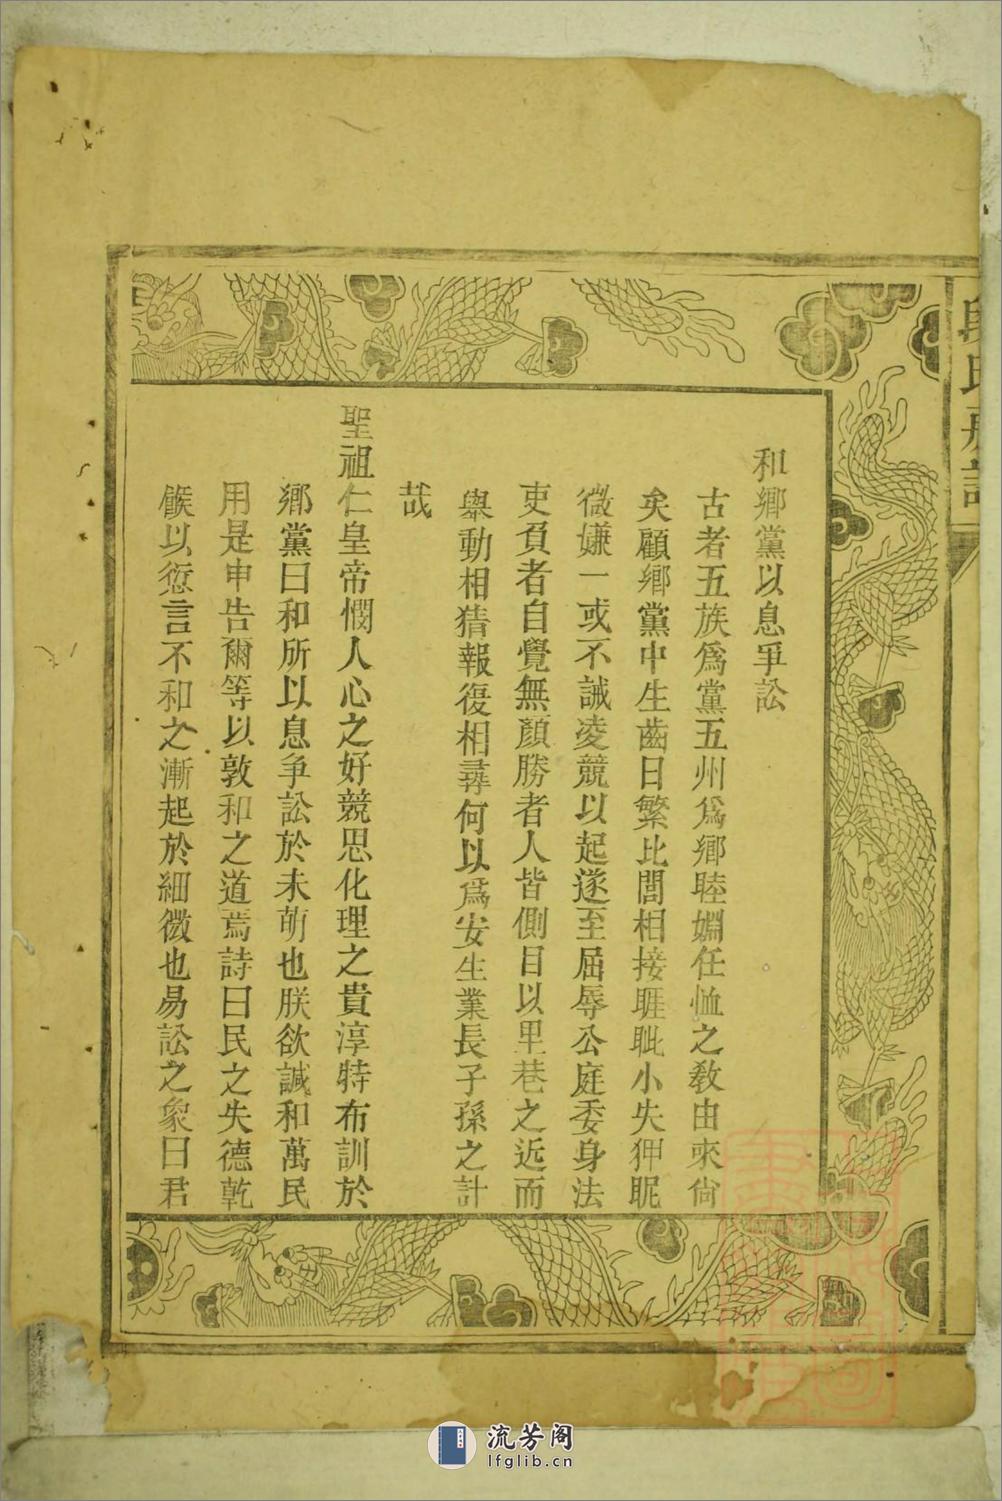 和鄉黨以息爭訟
古者五族爲黨五州爲鄉睦婣任恤之敎由來尙
矣顧鄉黨中生齒日繁比閭相接睚眦小失狎昵
微嫌一或不誡凌競以起遂至屈辱公庭委身法
吏負者自覺無顏勝者人皆側目以里巷之近而
舉動相猜報復相尋何以爲安生業長子孫之計
哉
聖祖仁皇帝憫人心之好競思化理之貴淳特布訓於
鄉黨曰和所以息爭訟於未萌也朕欲諴和萬民
用是申告爾等以敦和之道焉詩曰民之失德乾
餱以愆言不和之漸起於細微也易訟之象曰君
流芳阁
lfglib.cn